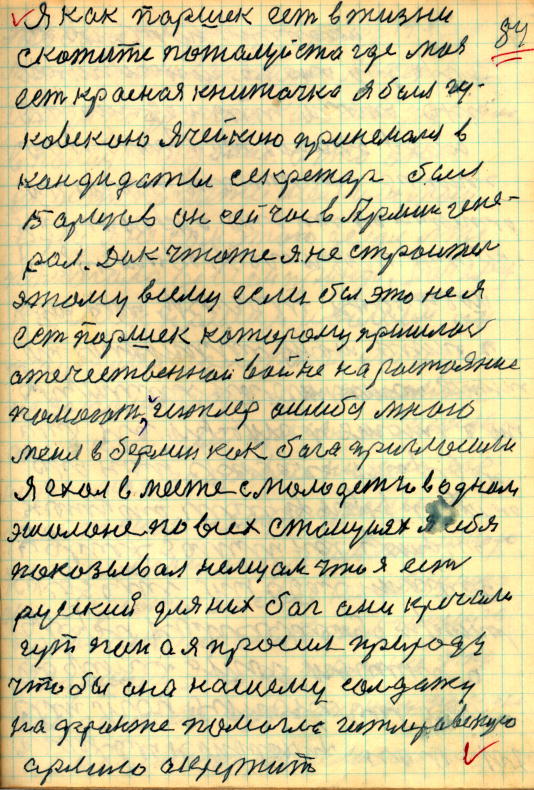 Я как паршек ест в жизни
84
скожите пожалуйста где моя
ест красная книжачка я был гу-
ковскою ячейкою принемался в
кандидаты секретар был
он сейчас в Армии гене-
рал. Дак чтоже я не строител
этому всему если бы это не я
ест паршек которому пришлос
отечественной войне на ростояние
помогат, гитлер ошибся мною
меня в берлин как бога приглосили
Я ехал в месте с молодежю в одном
эшалоне по всех станциях я себя
покозывал немцам что я ест
руский для них бог они кричали
гут пан а я просил природу
что бы она нашему солдату
на фронте помогла гитлеравскую
армию одержат